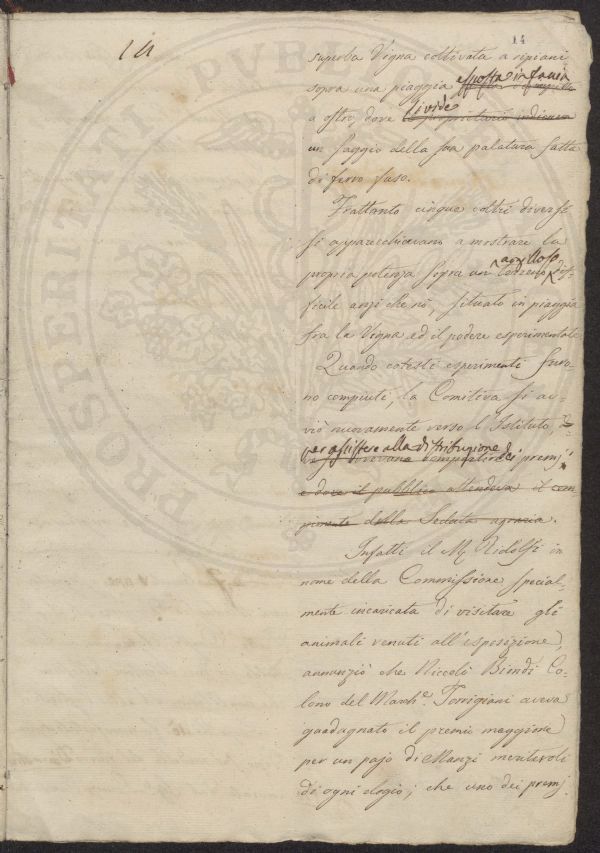 14
14
superba Vigna coltivata a ripiani
sopra una piaggia esposta in faccia
a ostro, dove si vide le proprietario indicava
un saggio della sua palatura fatta
di ferro fuso.
Frattanto cinque coltri diversi
si apparecchiavano a mostrare la
propria potenza sopra un terreno argilloso dif-
ficile anzi che nò, situato in piaggia
fra la Vigna ed il podere esperimentale
Quando cotesti esperimenti furo-
no compiuti, la Comitiva si av-
viò nuovamente verso l'Istituto,
per assistere alla distribuzione dei premj
e dove il pubblico attendeva il com-
pimento della Seduta agraria.
Infatti il M. Ridolfi in
nome della Commissione special-
mente incaricata di visitare gli
animali venuti all'esposizione,
annunziò che Niccolò Biondi Co-
lono del March.e Torrigiani aveva
guadagnato il premio maggiore
per un pajo di Manzi meritevoli
di ogni elogio; che uno dei premj
PROSPERITATI PUBLICAE